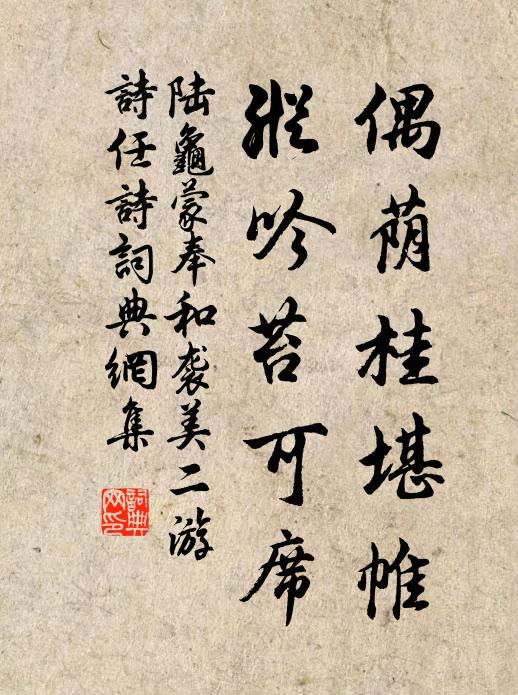 偶荫桂堪帷
縱吟苔可席
陆龜蒙奉和袭美二游
詩任詩詞典網集
詞典网印